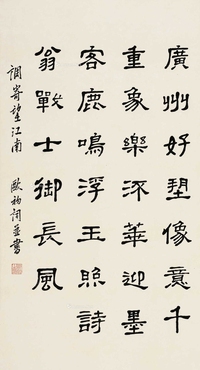 廣州好塑像意千
重象樂流華迎墨
客鹿鳴浮玉照詩
翁戰士御長風
調寄望江南
歐初詞並書